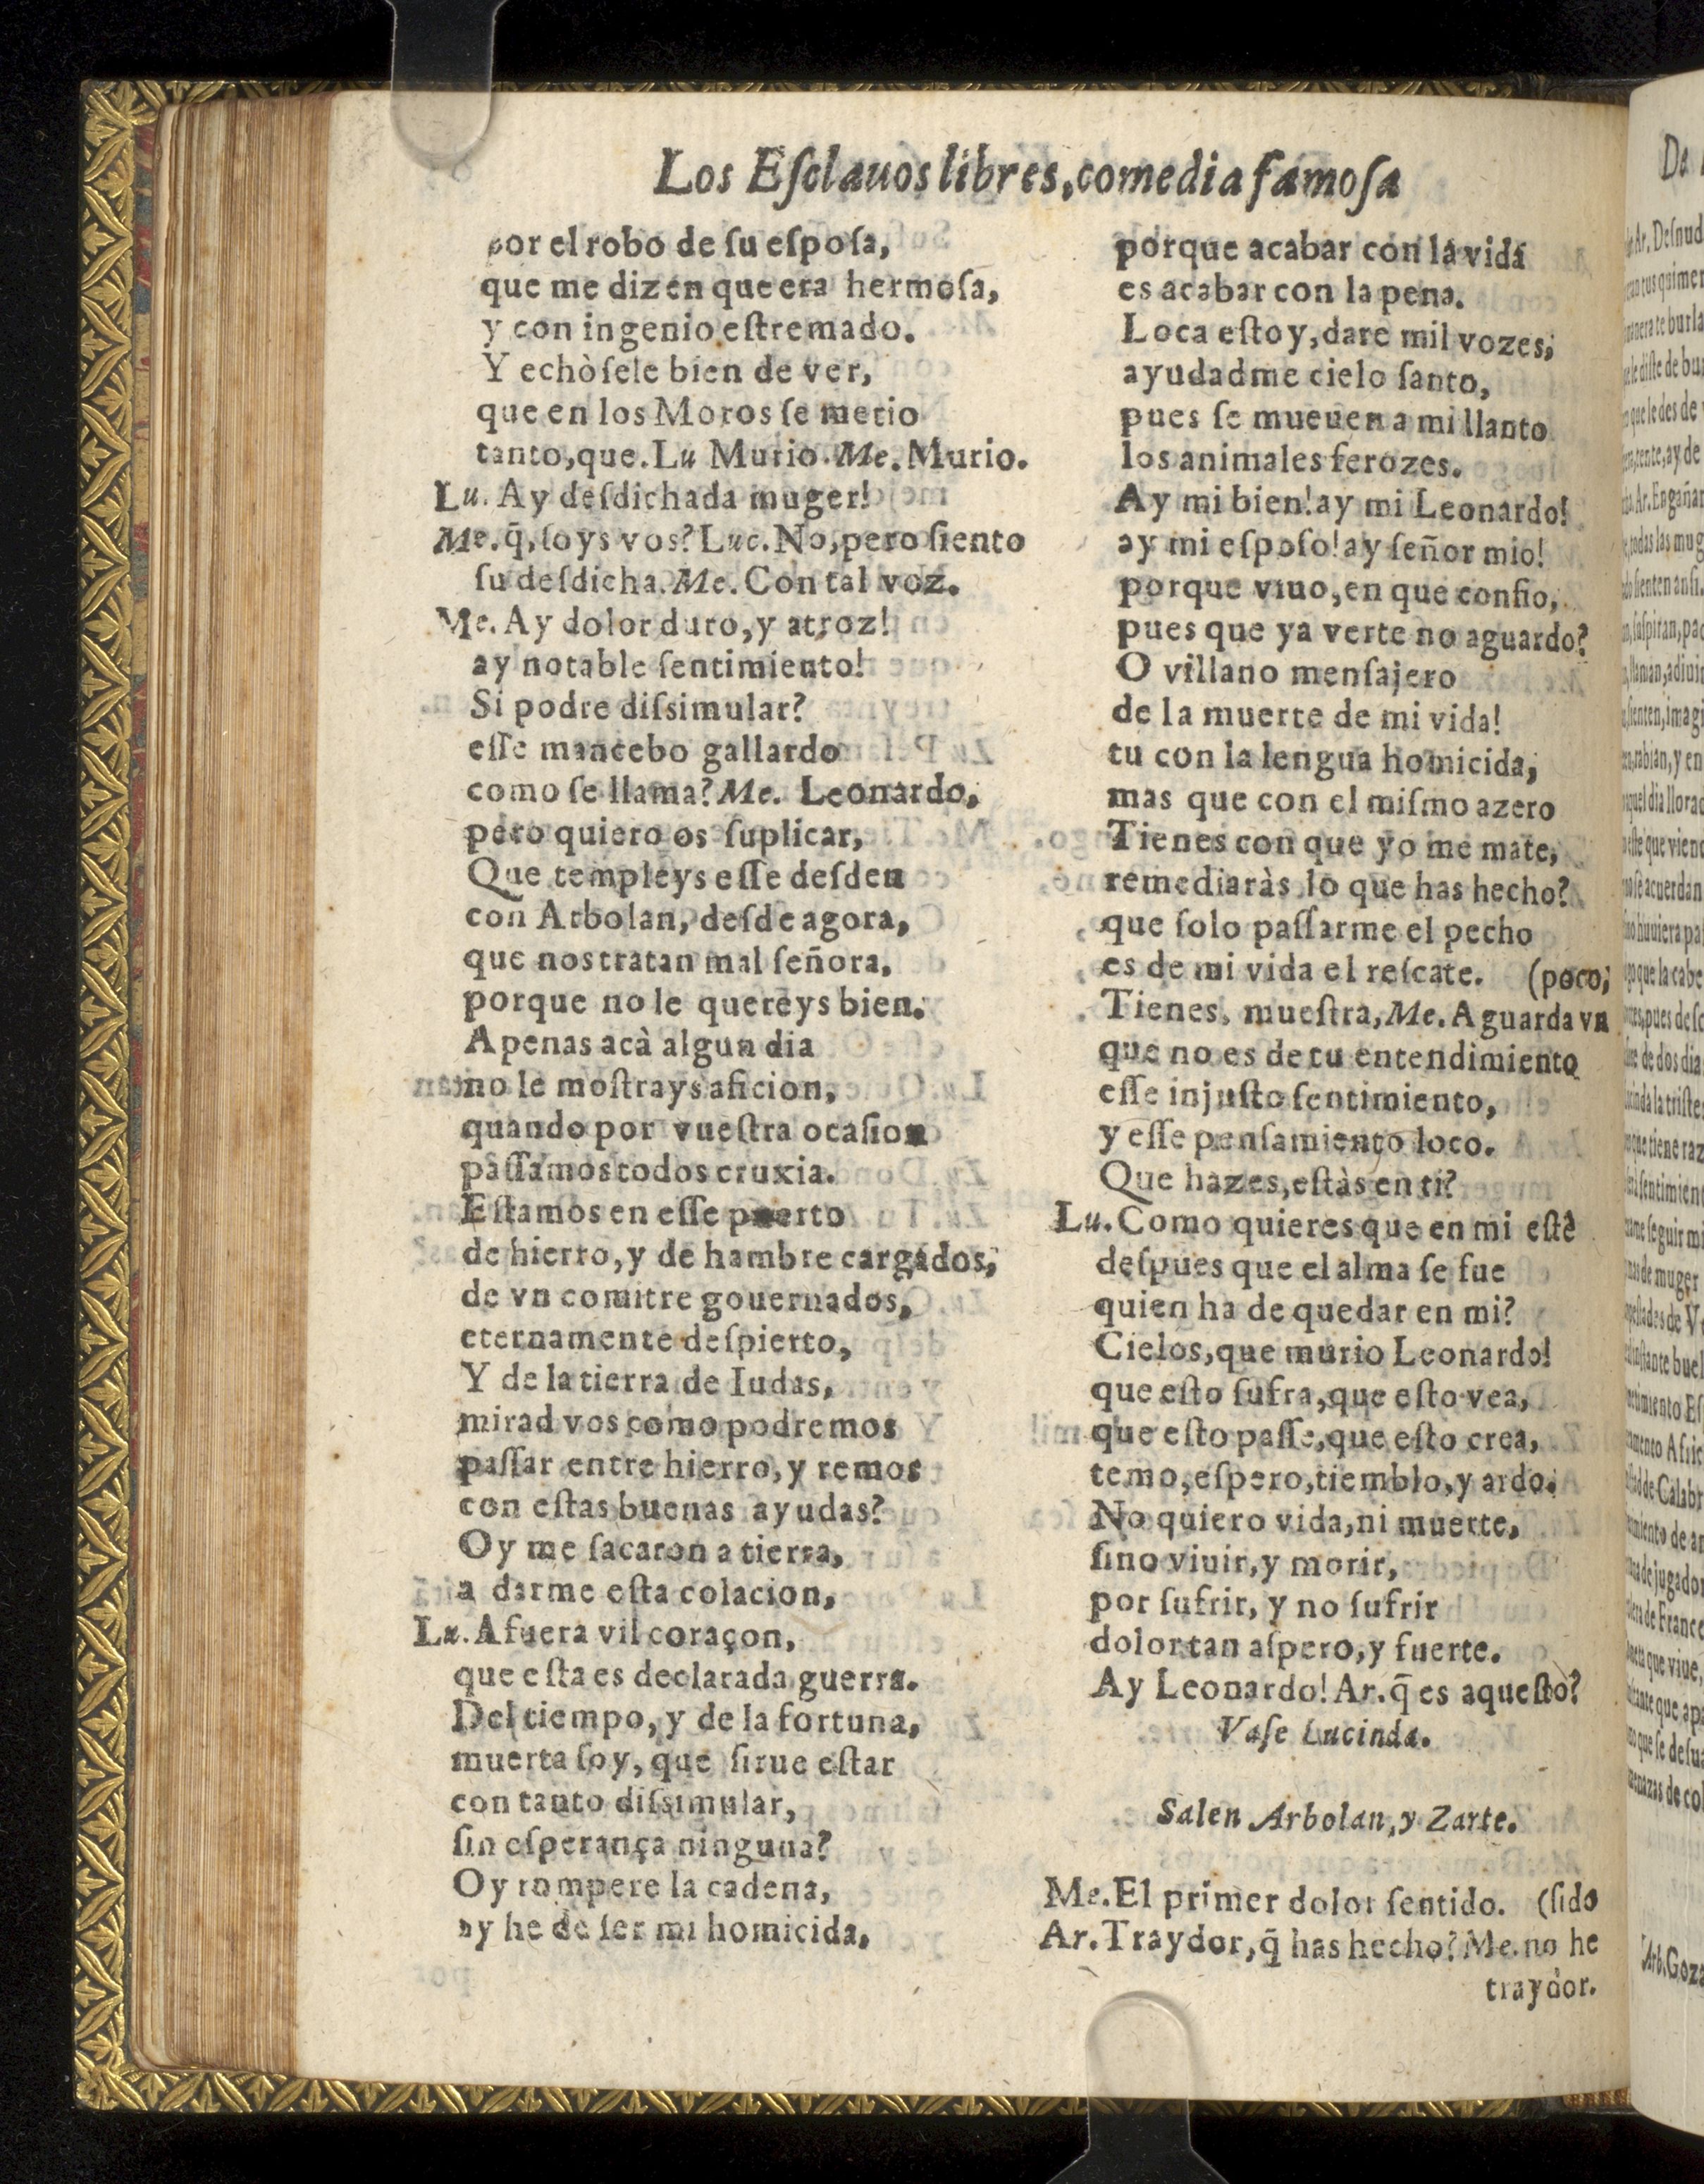 Los Eſclauos libres, comedia famoſa
por el robo de ſu eſpoſa,
que me dizen que era hermoſa,
y con ingenio eſtremado.
Y echòſele bien de ver,
que en los Moros ſe metio
tanto, que. Lu Murio. Me. Murio.
Lu. Ay deſdichada muger!
Me. q̄, ſoys vos? Luc. No, pero ſiento
ſu deſdicha. Me. Con tal voz.
Me. Ay dolor duro, y atroz!
ay notable ſentimiento!
Si podre diſsimular?
eſſe mancebo gallardo
como ſe llama? Me. Leonardo,
pero quiero os ſuplicar,
Que templeys eſſe deſden
con Arbolan, deſde agora,
que nos tratan mal ſeñora,
porque no le quereys bien.
Apenas acà algun dia
no le moſtrays aficion,
quando por vueſtra ocaſion
paſſamos todos cruxia.
Eſtamos en eſſe puerto
de hierro, y de hambre cargados,
de vn comitre gouernados,
eternamente deſpierto,
Y de la tierra de Iudas,
mirad vos como podremos
paſſar entre hierro, y remos
con eſtas buenas ayudas?
Oy me ſacaron a tierra,
a darme eſta colacion,
Lu. Afuera vil coraçon,
que eſta es declarada guerra.
Del tiempo, y de la fortuna,
muerta ſoy, que ſirue eſtar
con tanto diſsimular,
ſin eſperança ninguna?
Oy rompere la cadena,
oy he de ſer mi homicida,
porque acabar con la vida
es acabar con la pena.
Loca eſtoy, dare mil vozes,
ayudadme cielo ſanto,
pues ſe mueuen a mi llanto
los animales ferozes.
Ay mi bien! ay mi Leonardo!
ay mi eſpoſo! ay ſeñor mio!
porque viuo, en que confio,
pues que ya verte no aguardo?
O villano menſajero
de la muerte de mi vida!
tu con la lengua homicida,
mas que con el miſmo azero
Tienes con que yo me mate,
remediaràs lo que has hecho?
que ſolo paſſarme el pecho
es de mi vida el reſcate. (poco,
Tienes, mueſtra, Me. Aguarda vn
que no es de tu entendimiento
eſſe injuſto ſentimiento,
y eſſe penſamiento loco.
Que hazes, eſtàs en ti?
Lu. Como quieres que en mi eſtè
deſpues que el alma ſe fue
quien ha de quedar en mi?
Cielos, que murio Leonardo!
que eſto ſufra, que eſto vea,
que eſto paſſe, que eſto crea,
temo, eſpero, tiemblo, y ardo.
No quiero vida, ni muerte,
ſino viuir, y morir,
por ſufrir, y no ſufrir
dolor tan aſpero, y fuerte.
Ay Leonardo! Ar. q̄ es aqueſto?
Vaſe Lucinda.
Salen Arbolan, y Zarte.
Me. El primer dolor ſentido. (ſido
Ar. Traydor, q̄ has hecho? Me. no he
traydor.